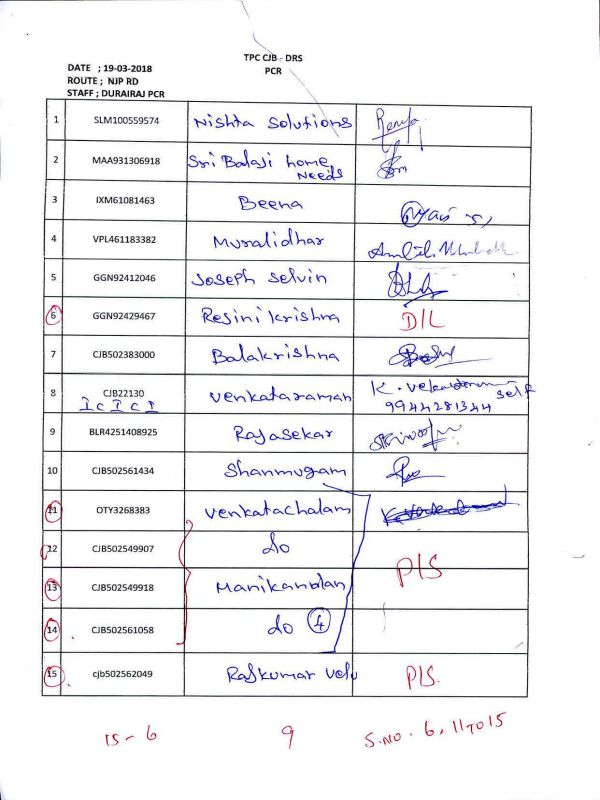 TPC CJB - DRS
PCR
DATE ; 19-03-2018
ROUTE ; NJP RD
STAFF ; DURAIRAJ PCR
1 SLM100559574 Nishta Solutions Renya
2 MAA931306918 Sri Balaji home Needs
3 IXM61081463 Beena
4 VPL461183382 Muralidhar
5 GGN92412046 Joseph Selvin
6 GGN92429467 Resini Krishna D/L
7 CJB502383000 Balakrishna
8 CJB22130 ICICI Venkataraman K. self 9944281344
9 BLR4251408925 Rajasekar
10 CJB502561434 Shanmugam
11 OTY3268383 Venkatachalam
12 CJB502549907 do
13 CJB502549918 Manikandan P/S
14 CJB502561058 do 4
15 cjb502562049 Rajkumar Velu P/S.
15 - 6 9 S.NO. 6, 11 TO 15